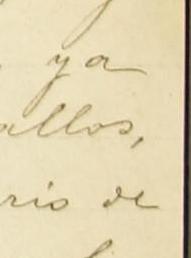 ya
allos,
rio de